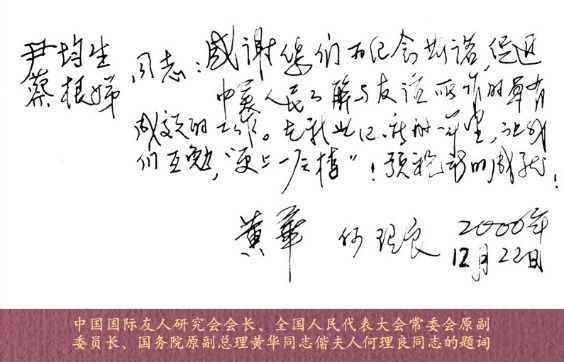 尹均生
蔡根娣 同志：感谢你们为纪念斯诺，促进
中美人民了解与友谊所作的卓有
成效的工作。在新世纪新的千年里，让我
们互勉，“更上一层楼”！预祝新的成就！
黄华 何理良 2000年
12月22日
中国国际友人研究会会长、全国人民代表大会常委会原副
委员长、国务院原副总理黄华同志偕夫人何理良同志的题词